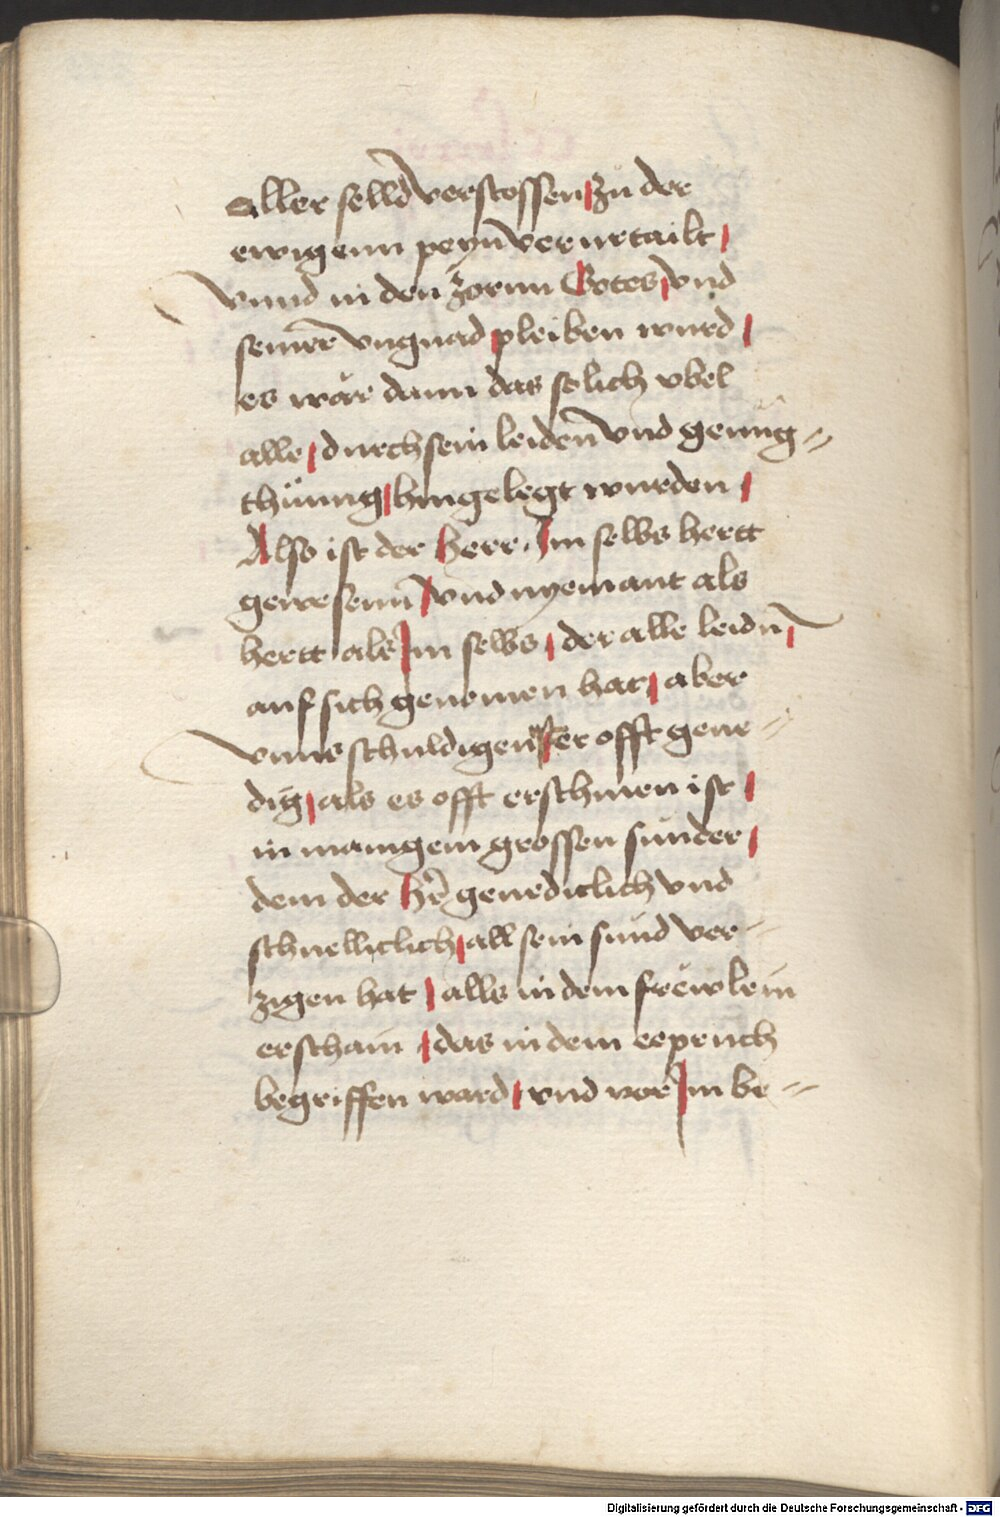 aller selld verstossen / zu der
ewigenn peyn verurtailt /
vnnd in den zornn Gotes / vnd
seinēr vngnad / pleiben wurd /
es wär dann das solich vbel
alle / durch sein leiden vnd genüg=
thüung / hingelegt wurden /
Also ist der Herr. Im selbs hertt
gewesenn / vnd nyemant als
hertt als Im selbs / der alle leidn̄ /
auf sich genomen hat / aber
vnns schuldigen ist er offt gene=
dig / als es offt erschinen ist /
in manigem grossen sunder /
dem der Hr̄ genediclich vnd
schnelliclich / all sein sünd ver=
zigen hat / alls in dem frëwlein
erschain / das in dem eepruch
begriffen ward / vnd vor Im be=
Digitalisierung gefördert durch die Deutsche Forschungsgemeinschaft - DFG